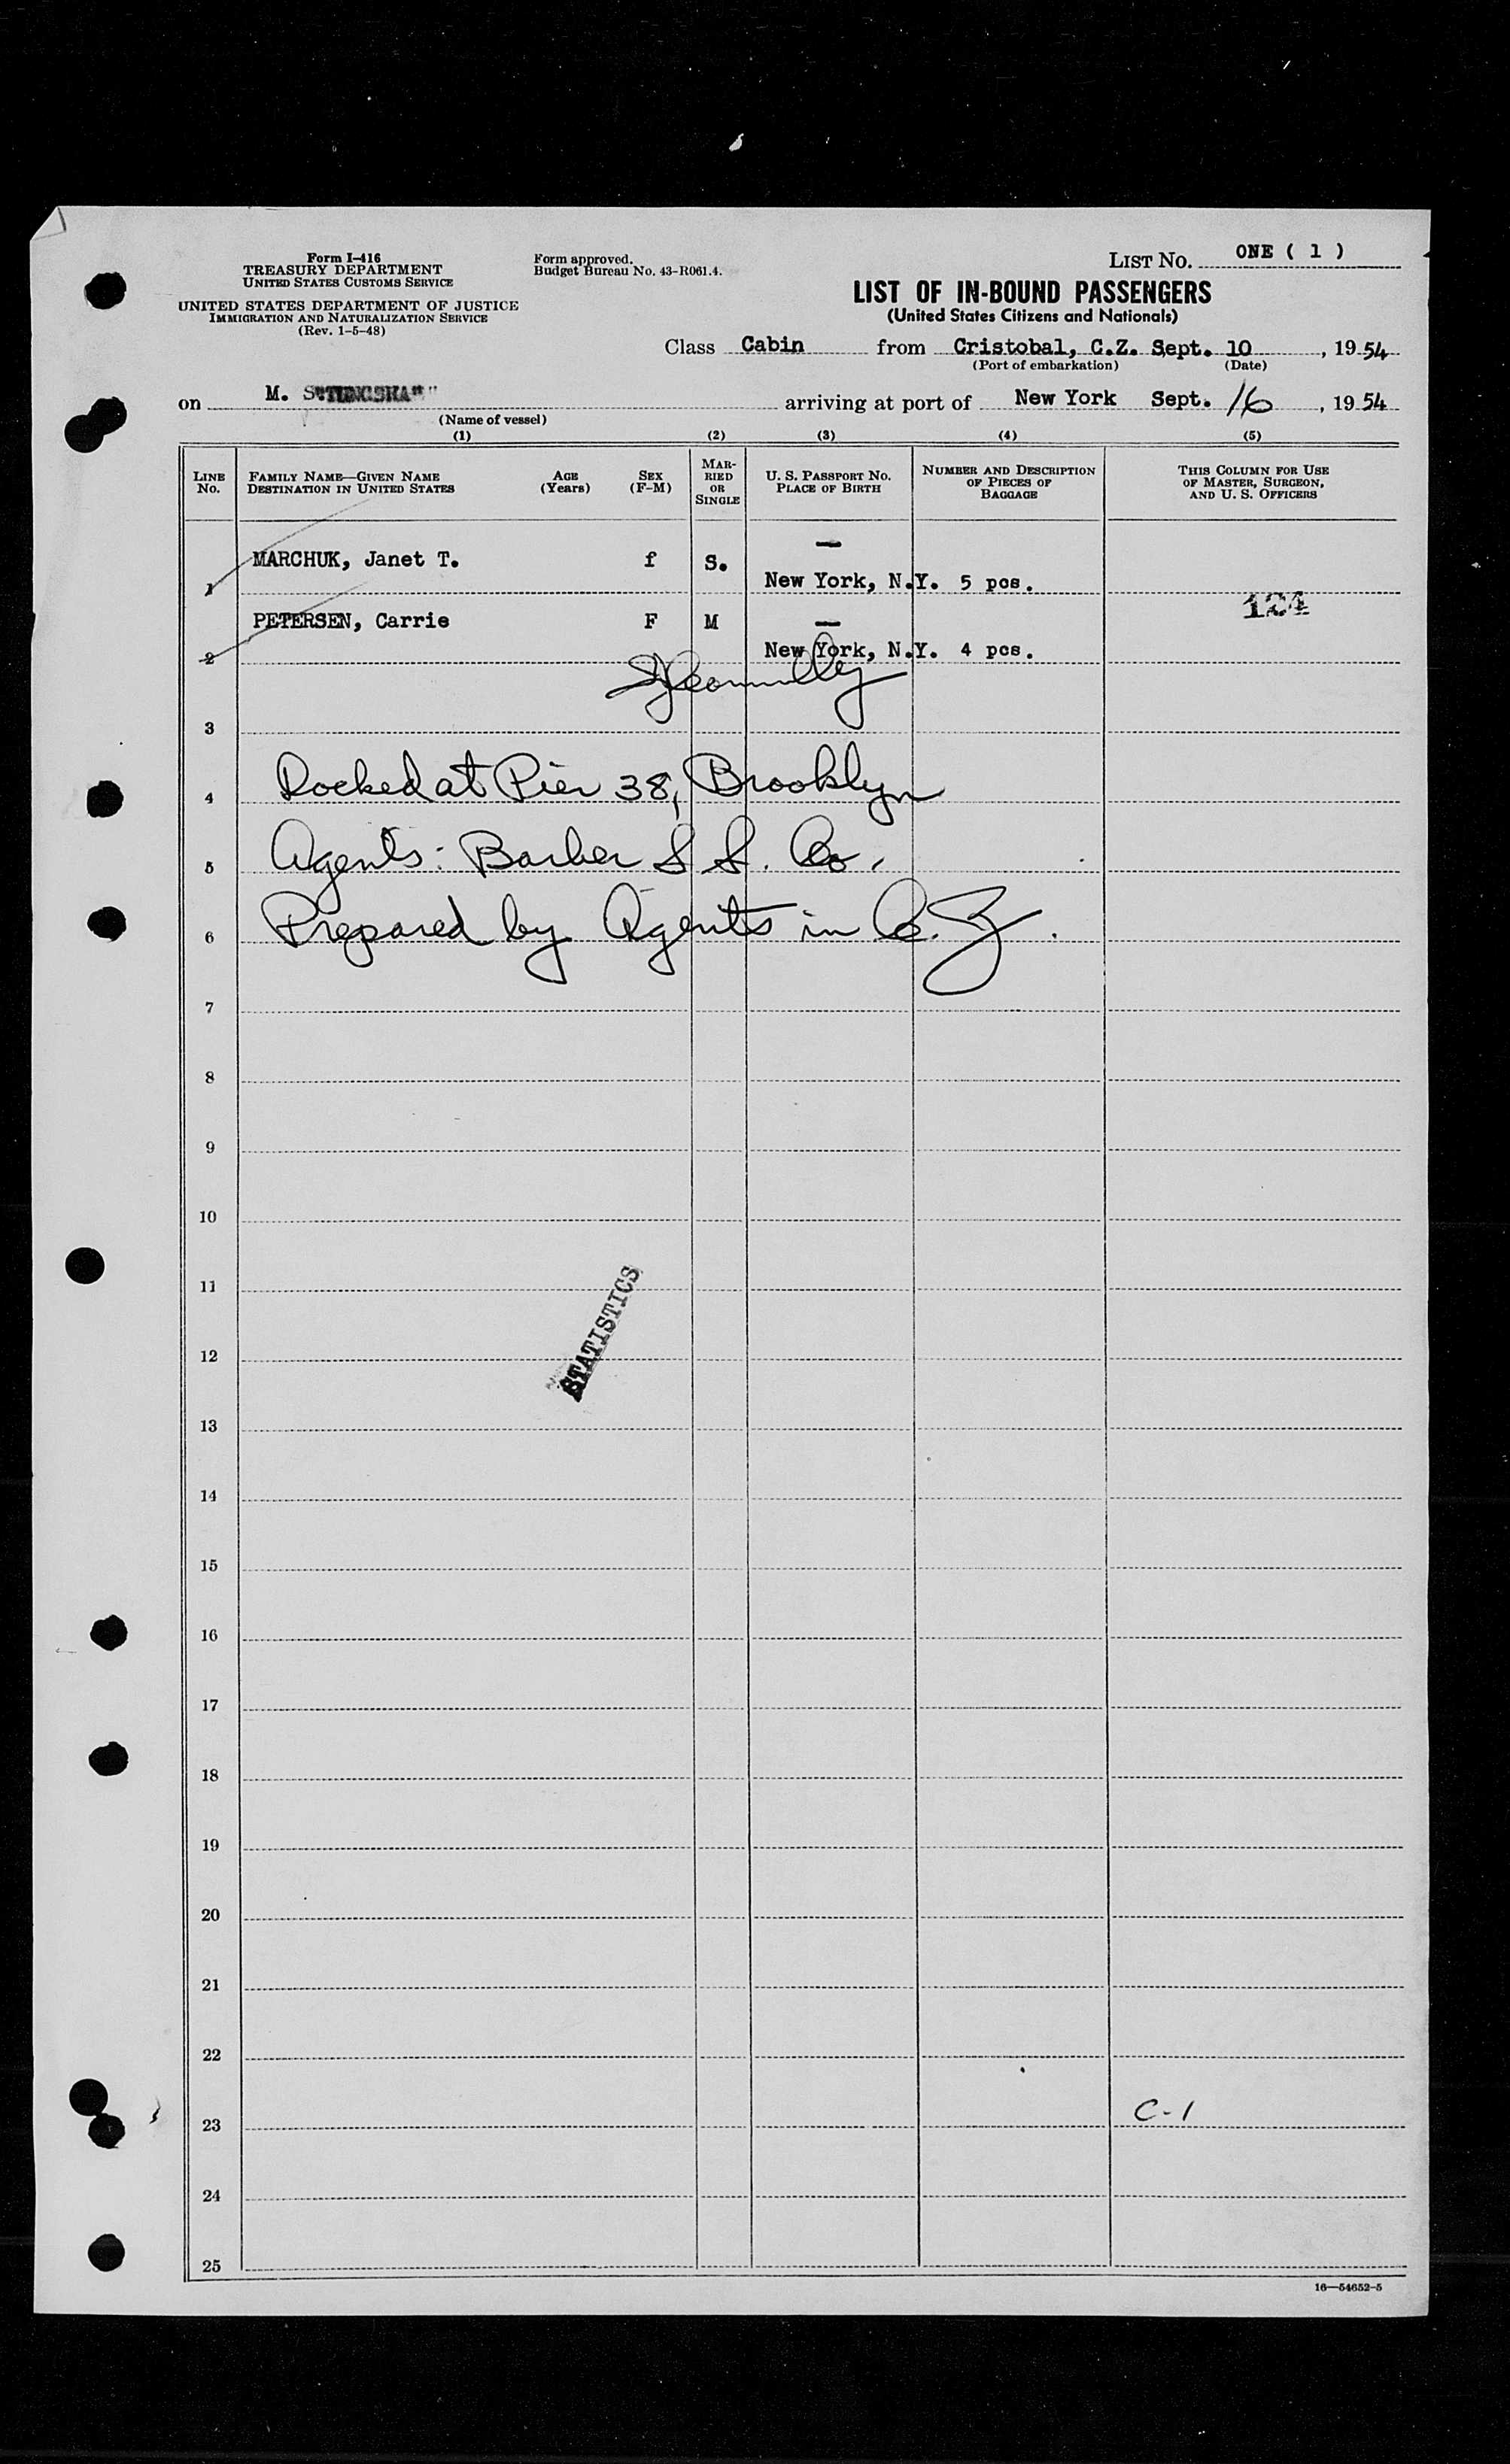 Form I-416
TREASURY DEPARTMENT
UNITED STATES CUSTOMS SERVICE
UNITED STATES DEPARTMENT OF JUSTICE
IMMIGRATION AND NATURALIZATION SERVICE
(Rev. 1-5-48)
Form approved.
Budget Bureau No. 43-R061.4.
LIST NO. ONE ( 1 )
LIST OF IN-BOUND PASSENGERS
(United States Citizens and Nationals)
Class Cabin from Cristobal, C.Z. Sept. 10, 1954
(Port of embarkation) (Date)
on M. S
arriving at port of New York Sept. 16, 1954
(Name of vessel)
(1) (2) (3) (4) (5)
LINE NO.
FAMILY NAME—GIVEN NAME
DESTINATION IN UNITED STATES
AGE (Years)
SEX (F-M)
MARRIED OR SINGLE
U. S. PASSPORT NO.
PLACE OF BIRTH
NUMBER AND DESCRIPTION
OF PIECES OF
BAGGAGE
THIS COLUMN FOR USE
OF MASTER, SURGEON,
AND U. S. OFFICERS
MARCHUK, Janet T. f S. —
1 New York, N.Y. 5 pcs.
124
PETERSEN, Carrie F M —
2 New York, N.Y. 4 pcs.
3
4 Docked at Pier 38, Brooklyn
5 Agents: Barber S S. Co.
6 Prepared by Agents in C.Z.
7
8
9
10
11
STATISTICS
12
13
14
15
16
17
18
19
20
21
22
23 C-1
24
25
16—54652-5